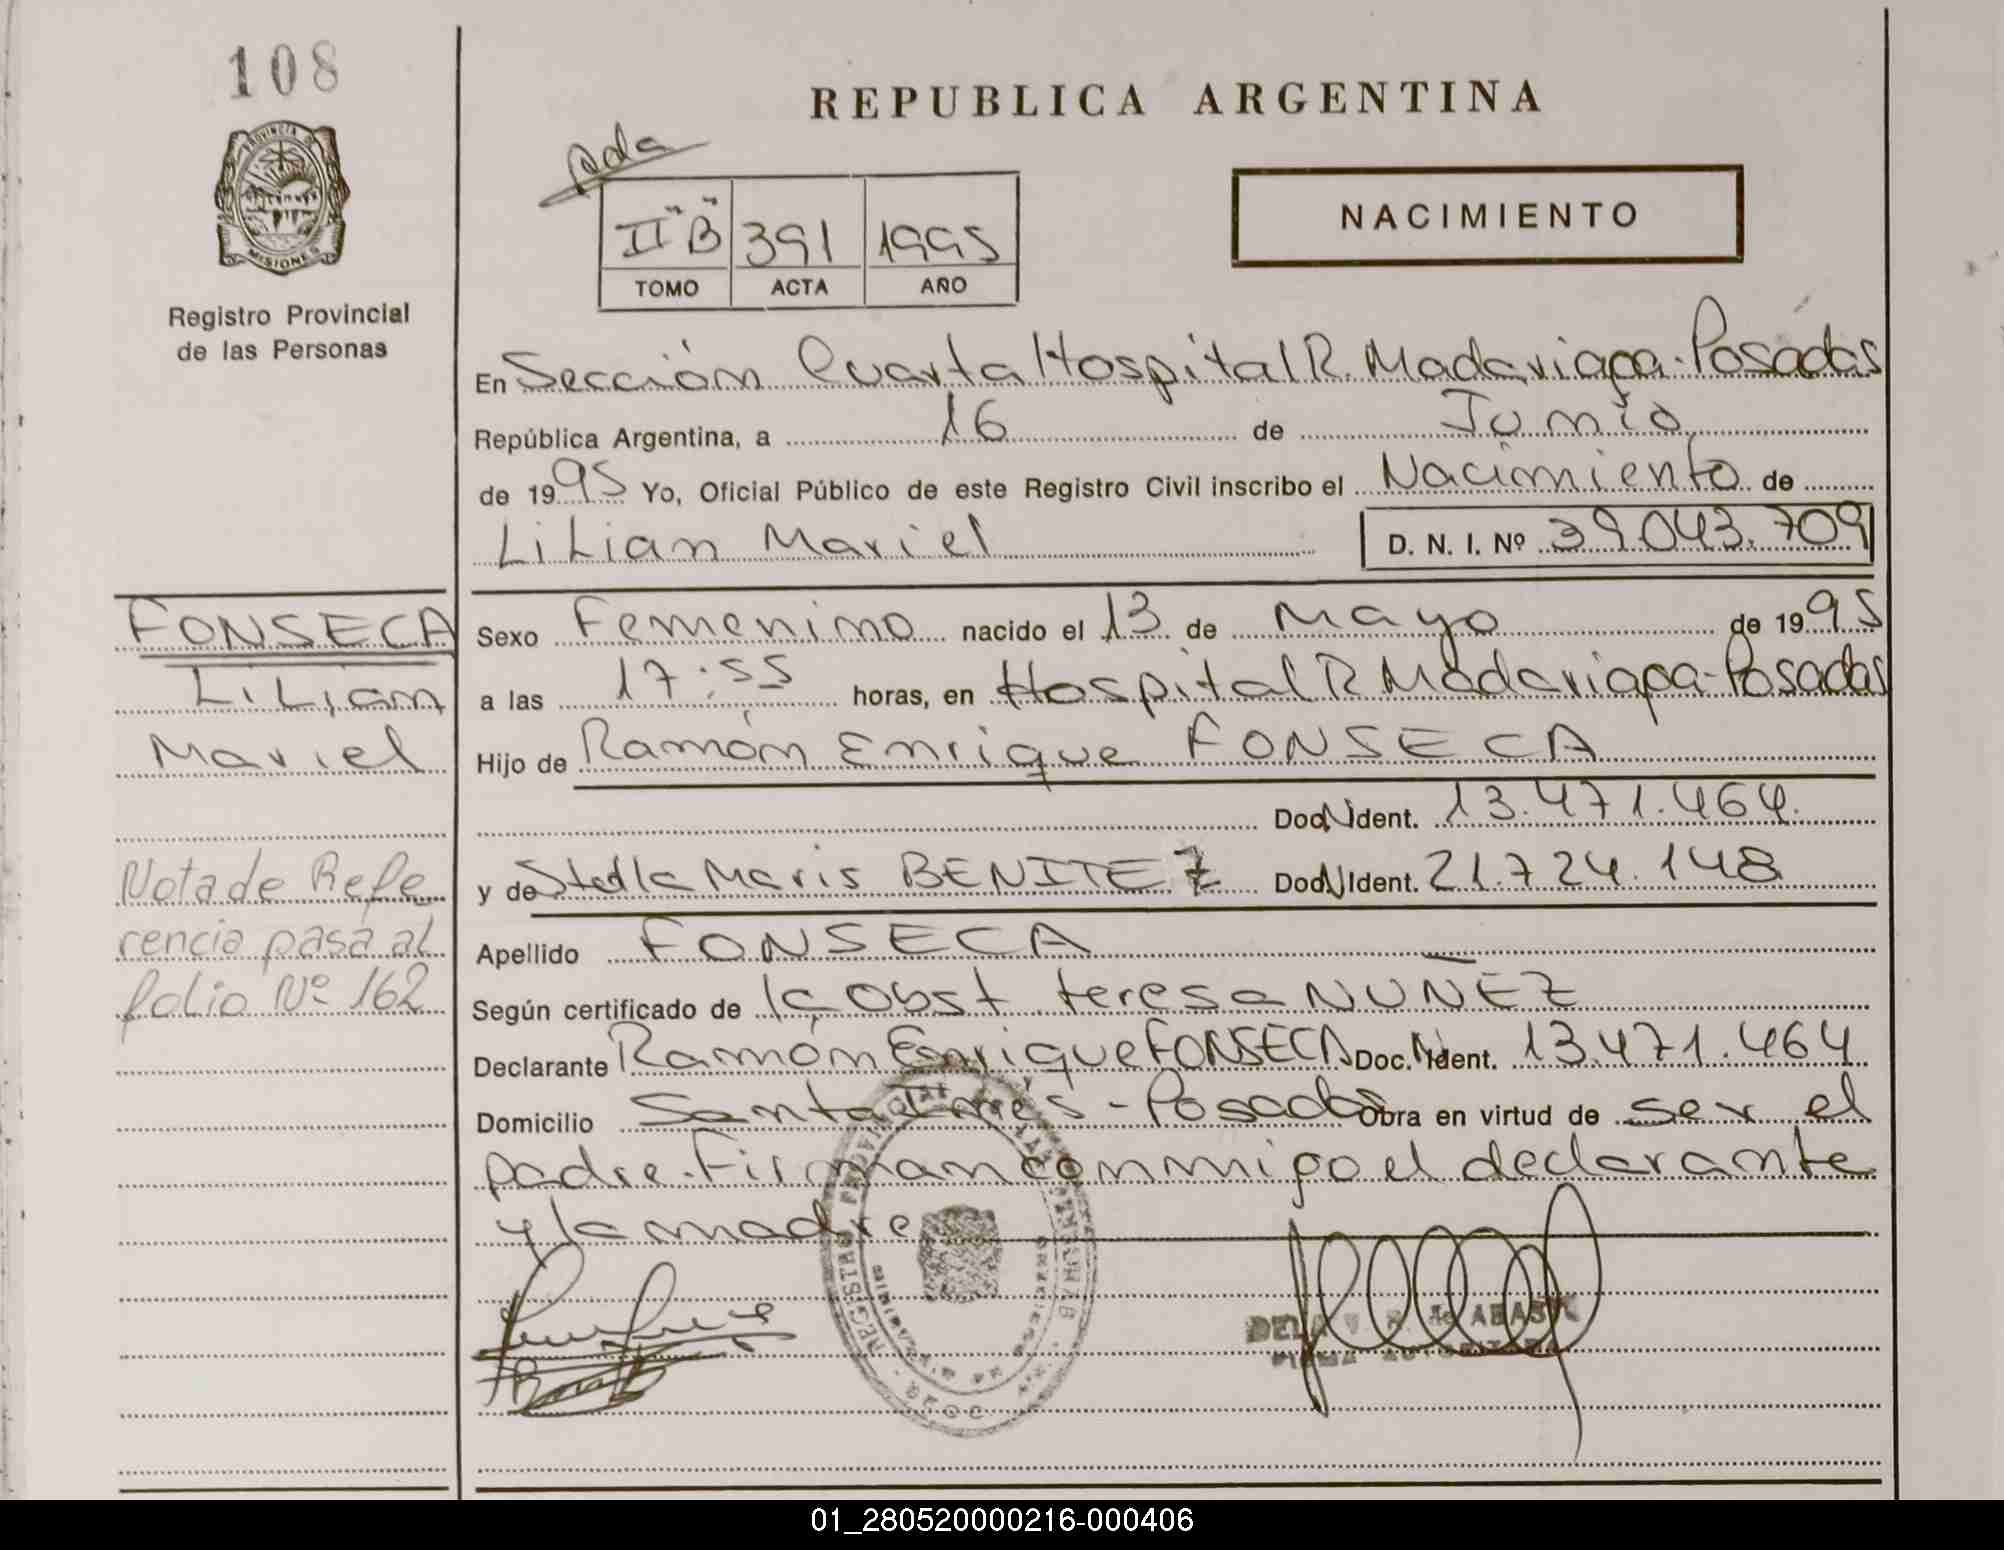 108
REPUBLICA ARGENTINA
PROVINCIA D
MISIONES
Registro Provincial
de las Personas
pda
II "B" 391 1995
TOMO ACTA AÑO
NACIMIENTO
En Sección Cuarta Hospital R. Madariaga - Posadas
República Argentina, a 16 de Junio
de 1995 Yo, Oficial Público de este Registro Civil inscribo el Nacimiento de
LiLian Mariel D. N. I. Nº 39.043.709
FONSECA
LiLian
Mariel
Sexo Femenino nacido el 13 de Mayo de 1995
a las 17:55 horas, en Hospital R Madariaga - Posadas
Hijo de Ramón Enrique FONSECA
Doc. N Ident. 13.471.464.
y de Stella Maris BENITEZ Doc. N Ident. 21.724.148
Nota de Refe
rencia pasa al
folio Nº 162
Apellido FONSECA
Según certificado de la Obst teresa NUÑEZ
Declarante Ramón Enrique FONSECA Doc. N Ident. 13.471.464
Domicilio Santa Inés - Posadas Obra en virtud de ser el
padre. Firman conmigo el declarante
y la madre
REGISTRO PROVINCIAL
01_280520000216-000406